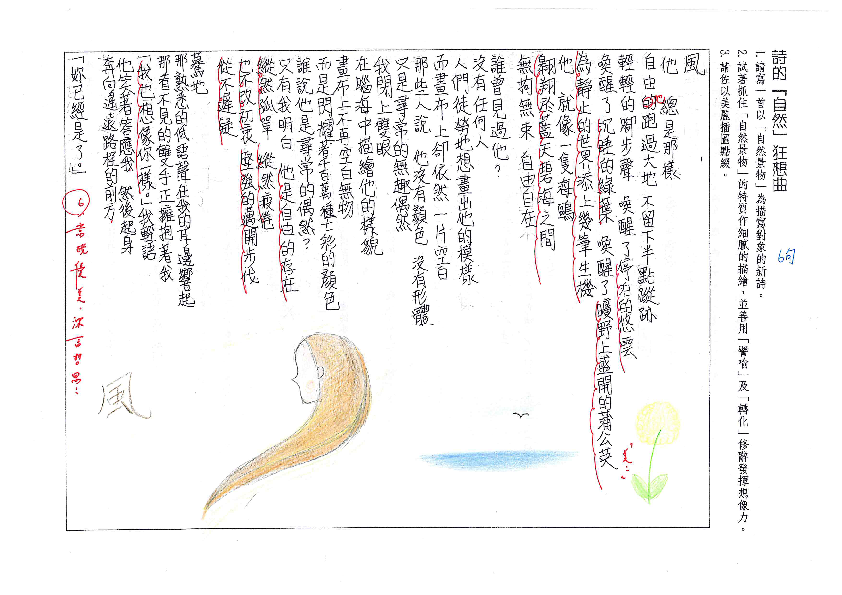 詩的『自然』狂想曲
1. 請寫一首以「自然景物」為描寫對象的新詩。
2. 試著抓住「自然景物」的特質作細膩的描繪，並善用「譬喻」及「轉化」修辭發揮想像力。
3. 請在以美麗插圖點綴。
6句
風
他 總是那樣
自由的跑過大地 不留下半點蹤跡
輕輕的腳步聲 喚醒了停力的悠雲
喚醒了沉睡的綠葉 喚醒了曠野上盛開的蒲公英
為靜止的世界添上幾筆生機
他 就像一隻海鷗
翱翔於藍天碧海之間
無拘無束 自由自在
誰曾見過他？
沒有任何人
人們 徒勞地想畫出他的模樣
而畫布上卻依然一片空白
那些人說 他沒有顏色 沒有形體
只是尋常的無趣偶然
我閉上雙眼
在腦海中描繪他的樣貌
畫布上不再空白無物
而是閃耀著千百萬種七彩的顏色
誰說他是尋常的偶然？
只有我明白 他是自由的存在
縱然孤單 縱然疲倦
也不改初衷 堅強的邁開步伐
從不遲疑
驀地
那熟悉的低語聲在我的耳邊響起
那看不見的雙手正擁抱著我
「我也想像你一樣。」我輕語
他笑著答應我 然後起身
奔向遙遠路程的前方
「妳已經是了。」
美
風